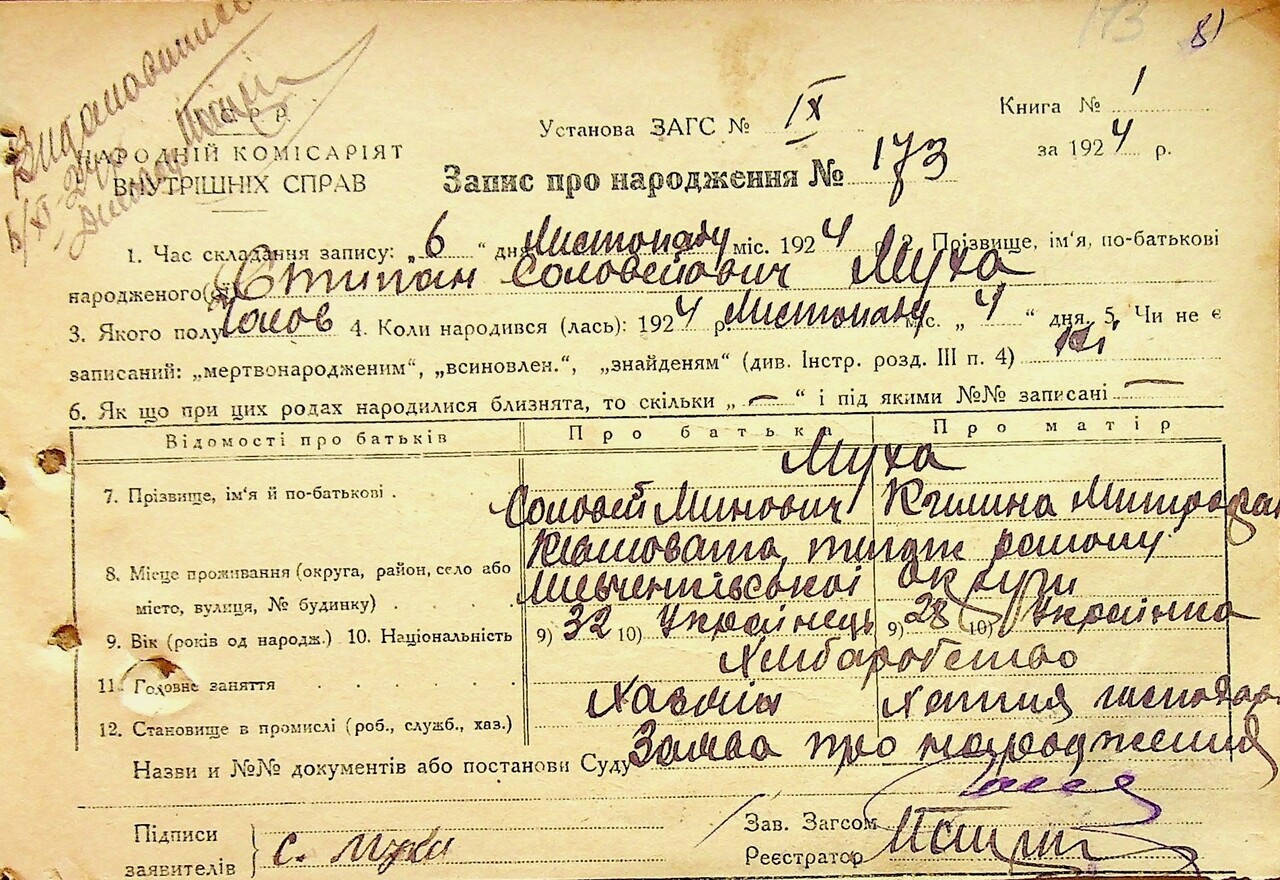 173 81
Видано виписъ
С Р Р
НАРОДНІЙ КОМІСАРІЯТ
ВНУТРІШНІХ СПРАВ
Установа ЗАГС № IX
Книга № 1
за 1924 р.
Запис про народження № 173
1. Час складання запису: „6“ дня Листопаду міс. 1924 р. 2. Прізвище, ім'я, по-батькові
народженого Стипан Соловейович Муха
3. Якого полу Чолов 4. Коли народився (лась): 1924 р. Листопаду міс. „4“ дня. 5. Чи не є
записаний: „мертвонародженим“, „всиновлен.“, „знайденям“ (див. Інстр. розд. III п. 4) Ні
6. Як що при цих родах народилися близнята, то скільки „—“ і під якими №№ записані —
Відомості про батьків Про батька Про матір
Муха
7. Прізвище, ім'я й по-батькові . Соловей Минович Килина
8. Місце проживання (округа, район, село або
місто, вулиця, № будинку) . .
Кашовата, тиєтж району
Шевченківської округи
9. Вік (років од народж.) 10. Національність 9) 32 10) Українець 9) 28 10) Українка
11. Головне заняття . . . . . Хліборобство
12. Становище в промислі (роб., служб., хаз.) Хазяїн Хатня господар
Назви и №№ документів або постанови Суду Заява про народження
Підписи
заявителів
С. Муха
Зав. Загсом
Реєстратор